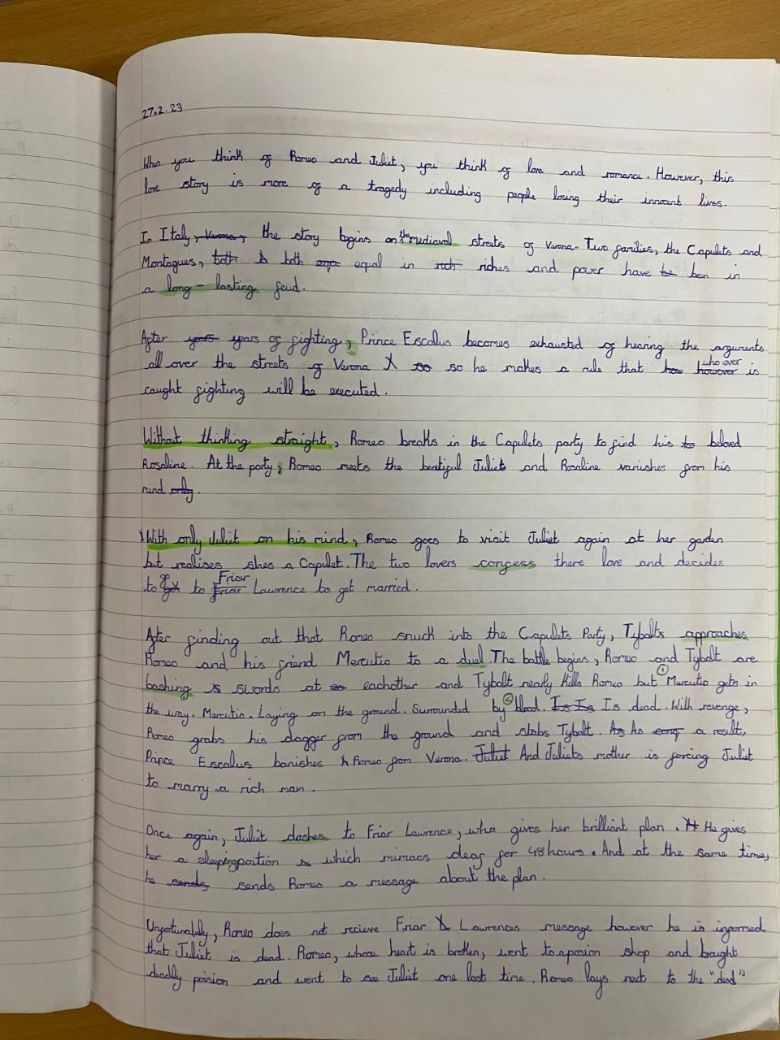 27.2.23
When you think of Romeo and Juliet, you think of love and romance. However, this
love story is more of a tragedy including people losing their innocent lives.
In Italy, Verona, the story begins on the medieval streets of Verona. Two families, the Capulets and
Montagues, both both equal in riches and power have been in
a long-lasting feud.
After years years of fighting, Prince Escalus becomes exhausted of hearing the arguments
all over the streets of Verona so so he makes a rule that how however who ever is
caught fighting will be executed.
Without thinking straight, Romeo breaks in the Capulets party to find his to beloved
Rosaline. At the party, Romeo meets the beatiful Juliet and Rosaline vanishes from his
mind only.
With only Juliet on his mind, Romeo goes to visit Juliet again at her garden
but realises shes a Capulet. The two lovers confess there love and decides
to to Friar Friar Lawrence to get married.
After finding out that Romeo snuck into the Capulets Party, Tybalt approaches
Romeo and his friend Mercutio to a duel. The battle begins, Romeo and Tybalt are
bashing swords at eachother and Tybalt nearly kills Romeo but Mercutio gets in
the way. Mercutio. Laying on the ground. Surrounded by blood. Is Is Is dead. With revenge,
Romeo grabs his dagger from the ground and stabs Tybalt. As As a result,
Prince Escalus banishes Romeo from Verona. Juliet And Juliets mother is forcing Juliet
to marry a rich man.
Once again, Juliet dashes to Friar Lawrence, who gives her brilliant plan. He gives
her a sleeping portion which mimacs deaf for 48 hours. And at the same time,
he sends sends Romeo a message about the plan.
Unfortunatly, Romeo does not recieve Friar Lawrences message however he is informed
that Juliet is dead. Romeo, whose heart is broken, went to a posion shop and bought
deadly poision and went to see Juliet one last time. Romeo lays next to the "dead"